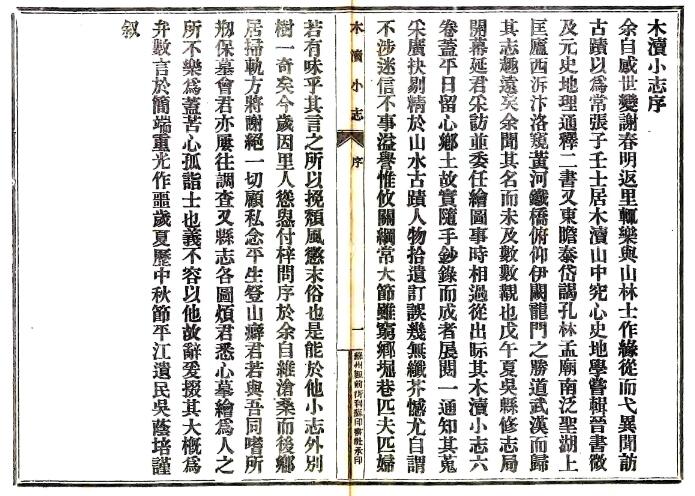 木瀆小志序
余自感世變謝春明返里輒樂與山林士作緣從而弋異聞訪
古蹟以爲常張子壬士居木瀆山中究心史地學嘗輯晉書徵
及元史地理通釋二書又東瞻泰岱謁孔林孟廟南泛聖湖上
匡廬西泝汴洛窺黃河鐵橋俯仰伊闕龍門之勝道武漢而歸
其志趣遠矣余聞其名而未及數數覯也戊午夏吳縣修志局
開幕延君采訪並委任繪圖事時相過從出眎其木瀆小志六
卷蓋平日留心鄉土故實隨手鈔錄而成者展閱一通知其蒐
采廣抉剔精於山水古蹟人物拾遺訂誤幾無纖芥憾尤自謂
不涉迷信不事溢譽惟攸關綱常大節雖窮鄉堀巷匹夫匹婦
木瀆小志
序
一
蘇州觀前文新印書社承印
若有味乎其言之所以挽頹風懲末俗也是能於他小志外別
樹一奇矣今歲因里人慫恿付梓問序於余自維滄桑而後鄉
居掃軌方將謝絕一切顧私念平生登山癖君若與吾同嗜所
刱保墓會君亦屢往調查又縣志各圖煩君悉心摹繪爲人之
所不樂爲蓋苦心孤詣士也義不容以他故辭爰掇其大槪爲
弁數言於簡端重光作噩歲夏歷中秋節平江遺民吳蔭培謹
叙